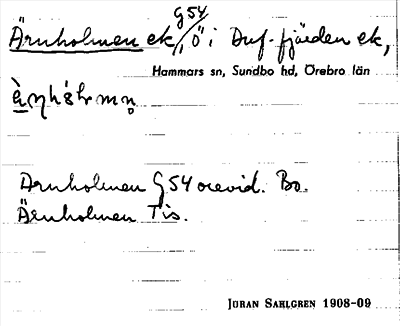 Ärnholmen ek, G54 "ö" i Duf-fjärden ek,
Hammars sn, Sundbo hd, Örebro län
Arnholmen G54 orevid. Bo.
Ärnholmen Tis.
JÖRAN SAHLGREN 1908-09